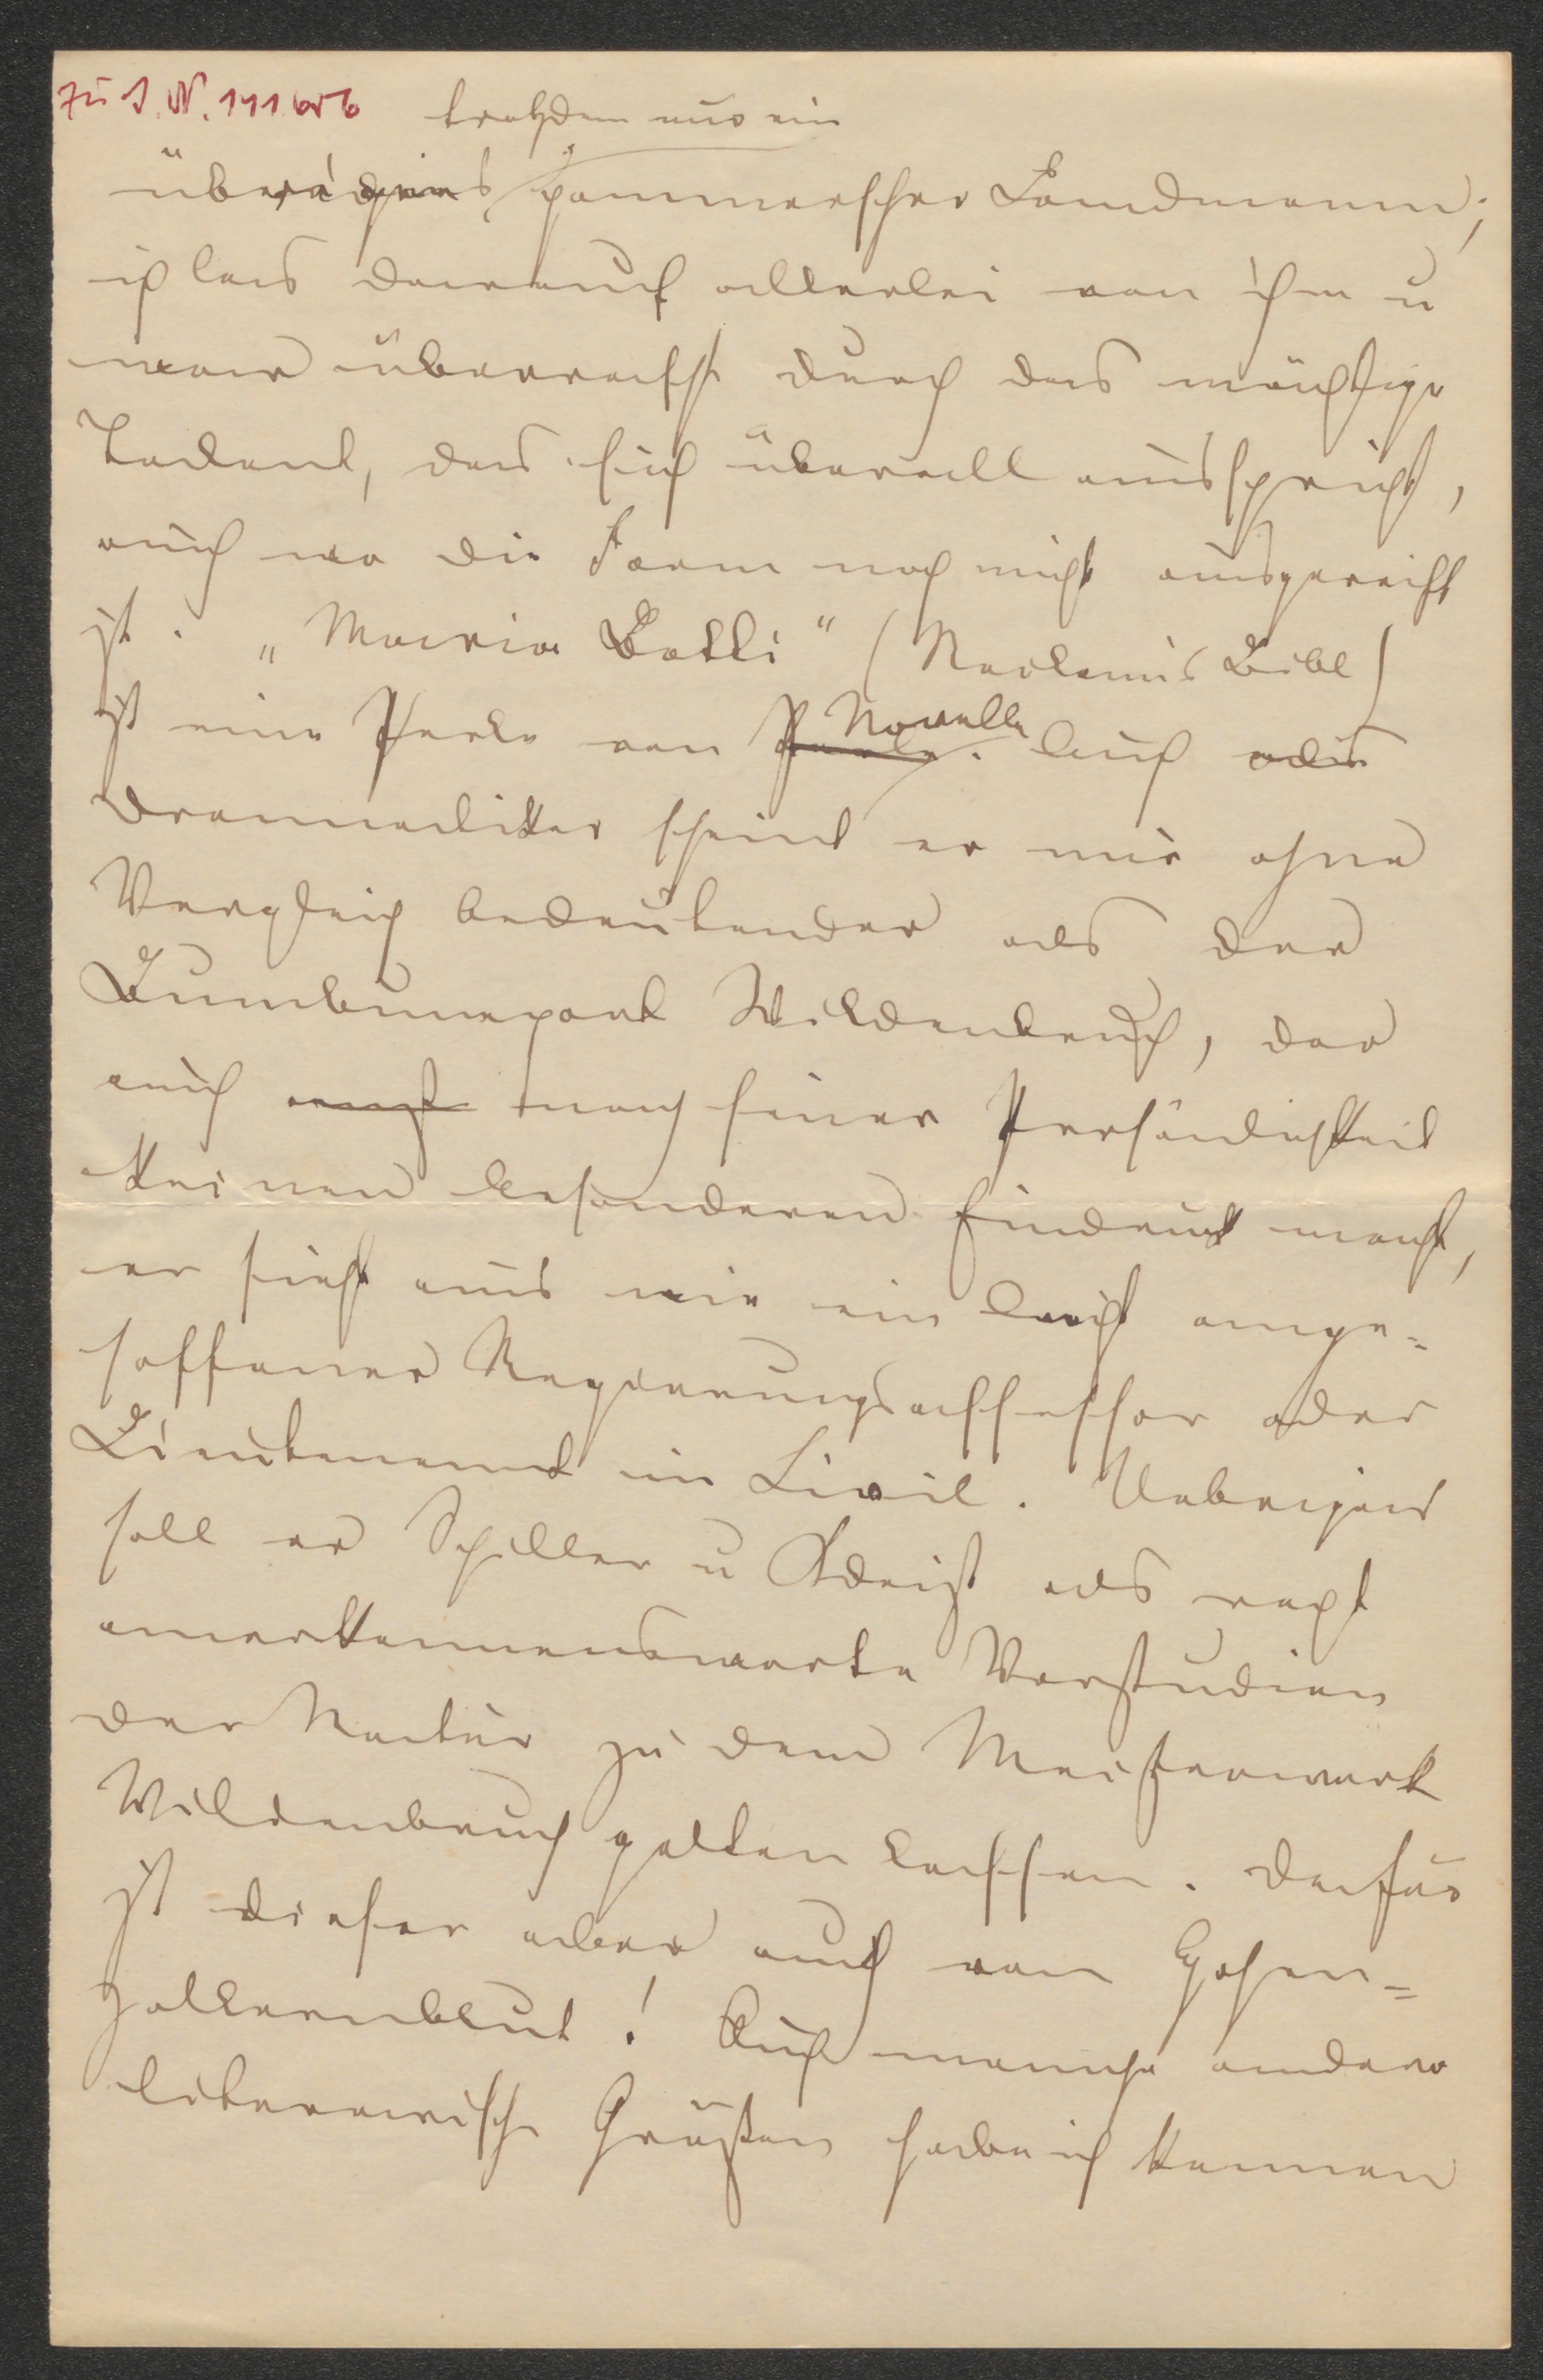 Zu I.N. 141656
trotzdem nur ein
überaus pommerscher Landmann;
ich las darauf allerlei von ihm u
war überrascht durch das mächtige
Talent, das sich überall ausspricht,
auch wo die Form noch nicht ausgereift
ist. „Maria Botti" (Reclams Bibl)
ist eine Perle von Perle. Novelle Auch als
Dramatiker scheint er mir ohne
Vergleich bedeutender als der
Bumbumpoet Wildenbruch, der
auch nach seiner Persönlichkeit
keinen besonderen Eindruck macht,
er sieht aus wie ein leicht ange-
soffener Regierungsassessor oder
Lieutenant in Civil. Uebrigens
soll er Schiller u Kleist als recht
anerkennenswerte Vorstudien
der Natur zu dem Meisterwerk
Wildenbruch gelten lassen. Dafür
ist dieser aber auch von Hohen-
zollernblut! Auch manche andere
literarische Größen habe ich kennen